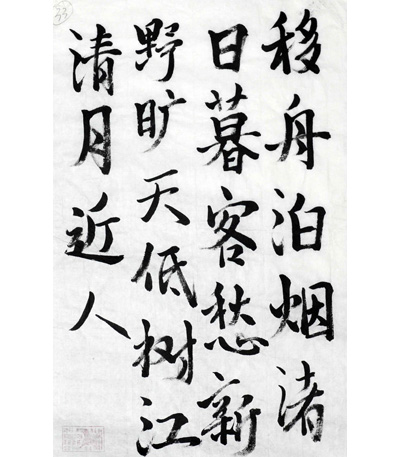 移舟泊烟渚
日暮客愁新
野旷天低树江
清月近人
23